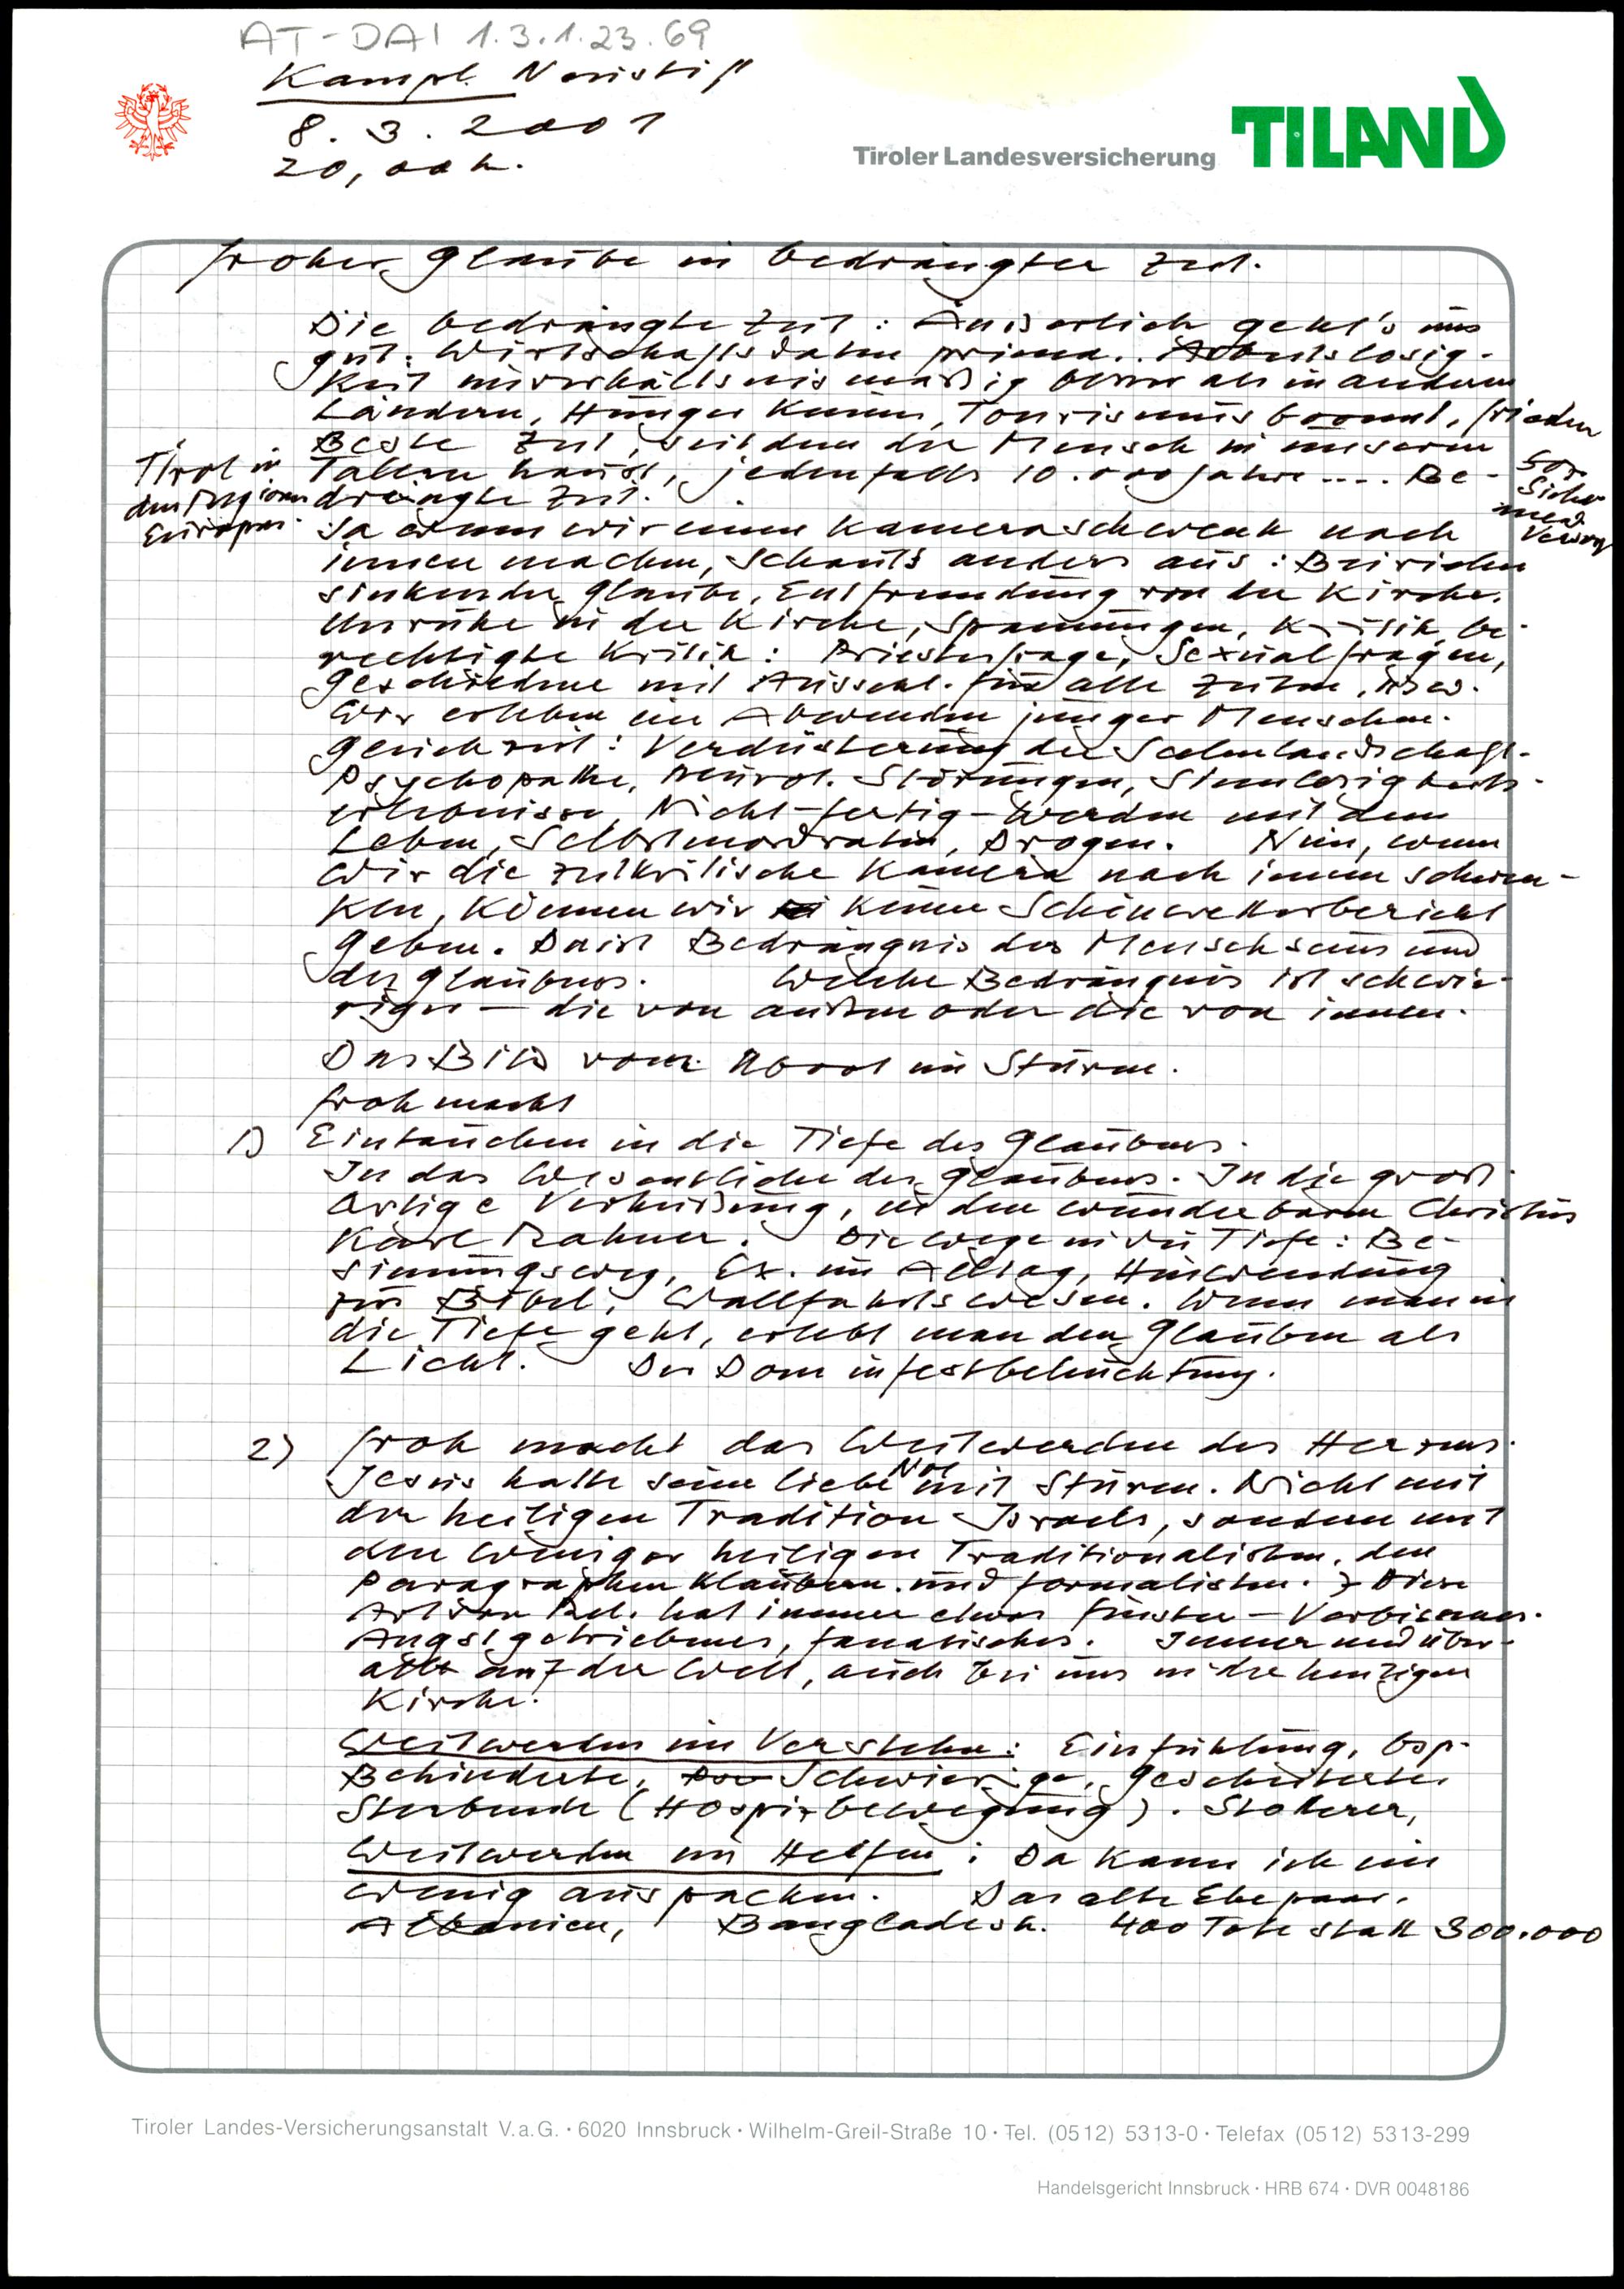 AT-DAI 1.3.1.23.69
Kampl. Neustift
8. 3. 2001
20,00 h.
Tiroler Landesversicherung TILAND
Froher Glaube in bedrängter Zeit.
Die bedrängte Zeit: Äusserlich geht's uns
gut: Wirtschaftsdaten prima.. Arbeitslosig-
keit unverhältnismäßig besser als in anderen
Ländern, Hunger keiner, Tourismus boomt, Frieden
Beste Zeit, seitdem der Mensch in unseren
Tälern haust, jedenfalls 10.000 Jahre .... Be-
drängte Zeit.
Tirol in
den Regionen
Europas.
Soz.
Sicher
med.
Versorg
Ja wenn wir einen Kameraschwenk nach
innen machen, schaut's anders aus: Bei vielen
sinkender Glaube, Entfremdung von der Kirche.
Unruhe in der Kirche, Spannungen, Kritik, be-
rechtigte Kritik: Priesterfrage, Sexualfragen,
Geschiedene mit Aussschl. für alle Zeiten, usw.
Wir erleben ein Abwenden junger Menschen.
Gleichzeit: Verdüsterung der Seelenlandschaft.
Psychopathe, Neurot. Störungen, Sinnlosigkeits-
erlebnisse, Nicht-fertig-werden mit dem
Leben, Selbstmordraten, Drogen. Nun, wenn
wir die zeitkritische Kamera nach innen schwen-
ken, können wir keinen Schönwetterbericht
geben. Da ist Bedrängnis des Menschseins und
des Glaubens. Welche Bedrängnis ist schwie-
riger – die von außen oder die von innen.
Das Bild vom Boot im Sturm.
Froh macht
1) Eintauchen in die Tiefe des Glaubens.
In das Wesentliche des Glaubens. In die groß-
artige Verheißung, in den wunderbaren Christus
Karl Rahner. Die Wege in die Tiefe: Be-
sinnungsweg, Ex. im Alltag, Hinwendung
zur Bibel, Wallfahrtswesen. Wenn man in
die Tiefe geht, erlebt man den Glauben als
Licht. Der Dom in Festbeleuchtung.
2) Froh macht das Weitwerden des Herzens.
Jesus hatte seine liebe Not mit Sturen. Nicht mit
der heiligen Tradition Israels, sondern mit
den weniger heiligen Traditionalisten, den
Paragraphenklaubern und Formalisten. Diese
Art von Rel. hat immer etwas Finster-Verbissenes.
Angstgetriebenes, fanatisches. Immer und über-
all auf der Welt, auch bei uns in der heutigen
Kirche.
Weitwerden im Verstehen: Einfühlung, bsp.
Behinderte, Schwierige, Gescheiterte.
Sterbende (Hospizbewegung). Stotterer,
Weitwerden im Helfen: Da kann ich ein
wenig auspacken. Das alte Ehepaar.
Albanien, Bangladesh. 400 Tote statt 300.000
Tiroler Landes-Versicherungsanstalt V.a.G. • 6020 Innsbruck • Wilhelm-Greil-Straße 10 • Tel. (0512) 5313-0 • Telefax (0512) 5313-299
Handelsgericht Innsbruck • HRB 674 • DVR 0048186